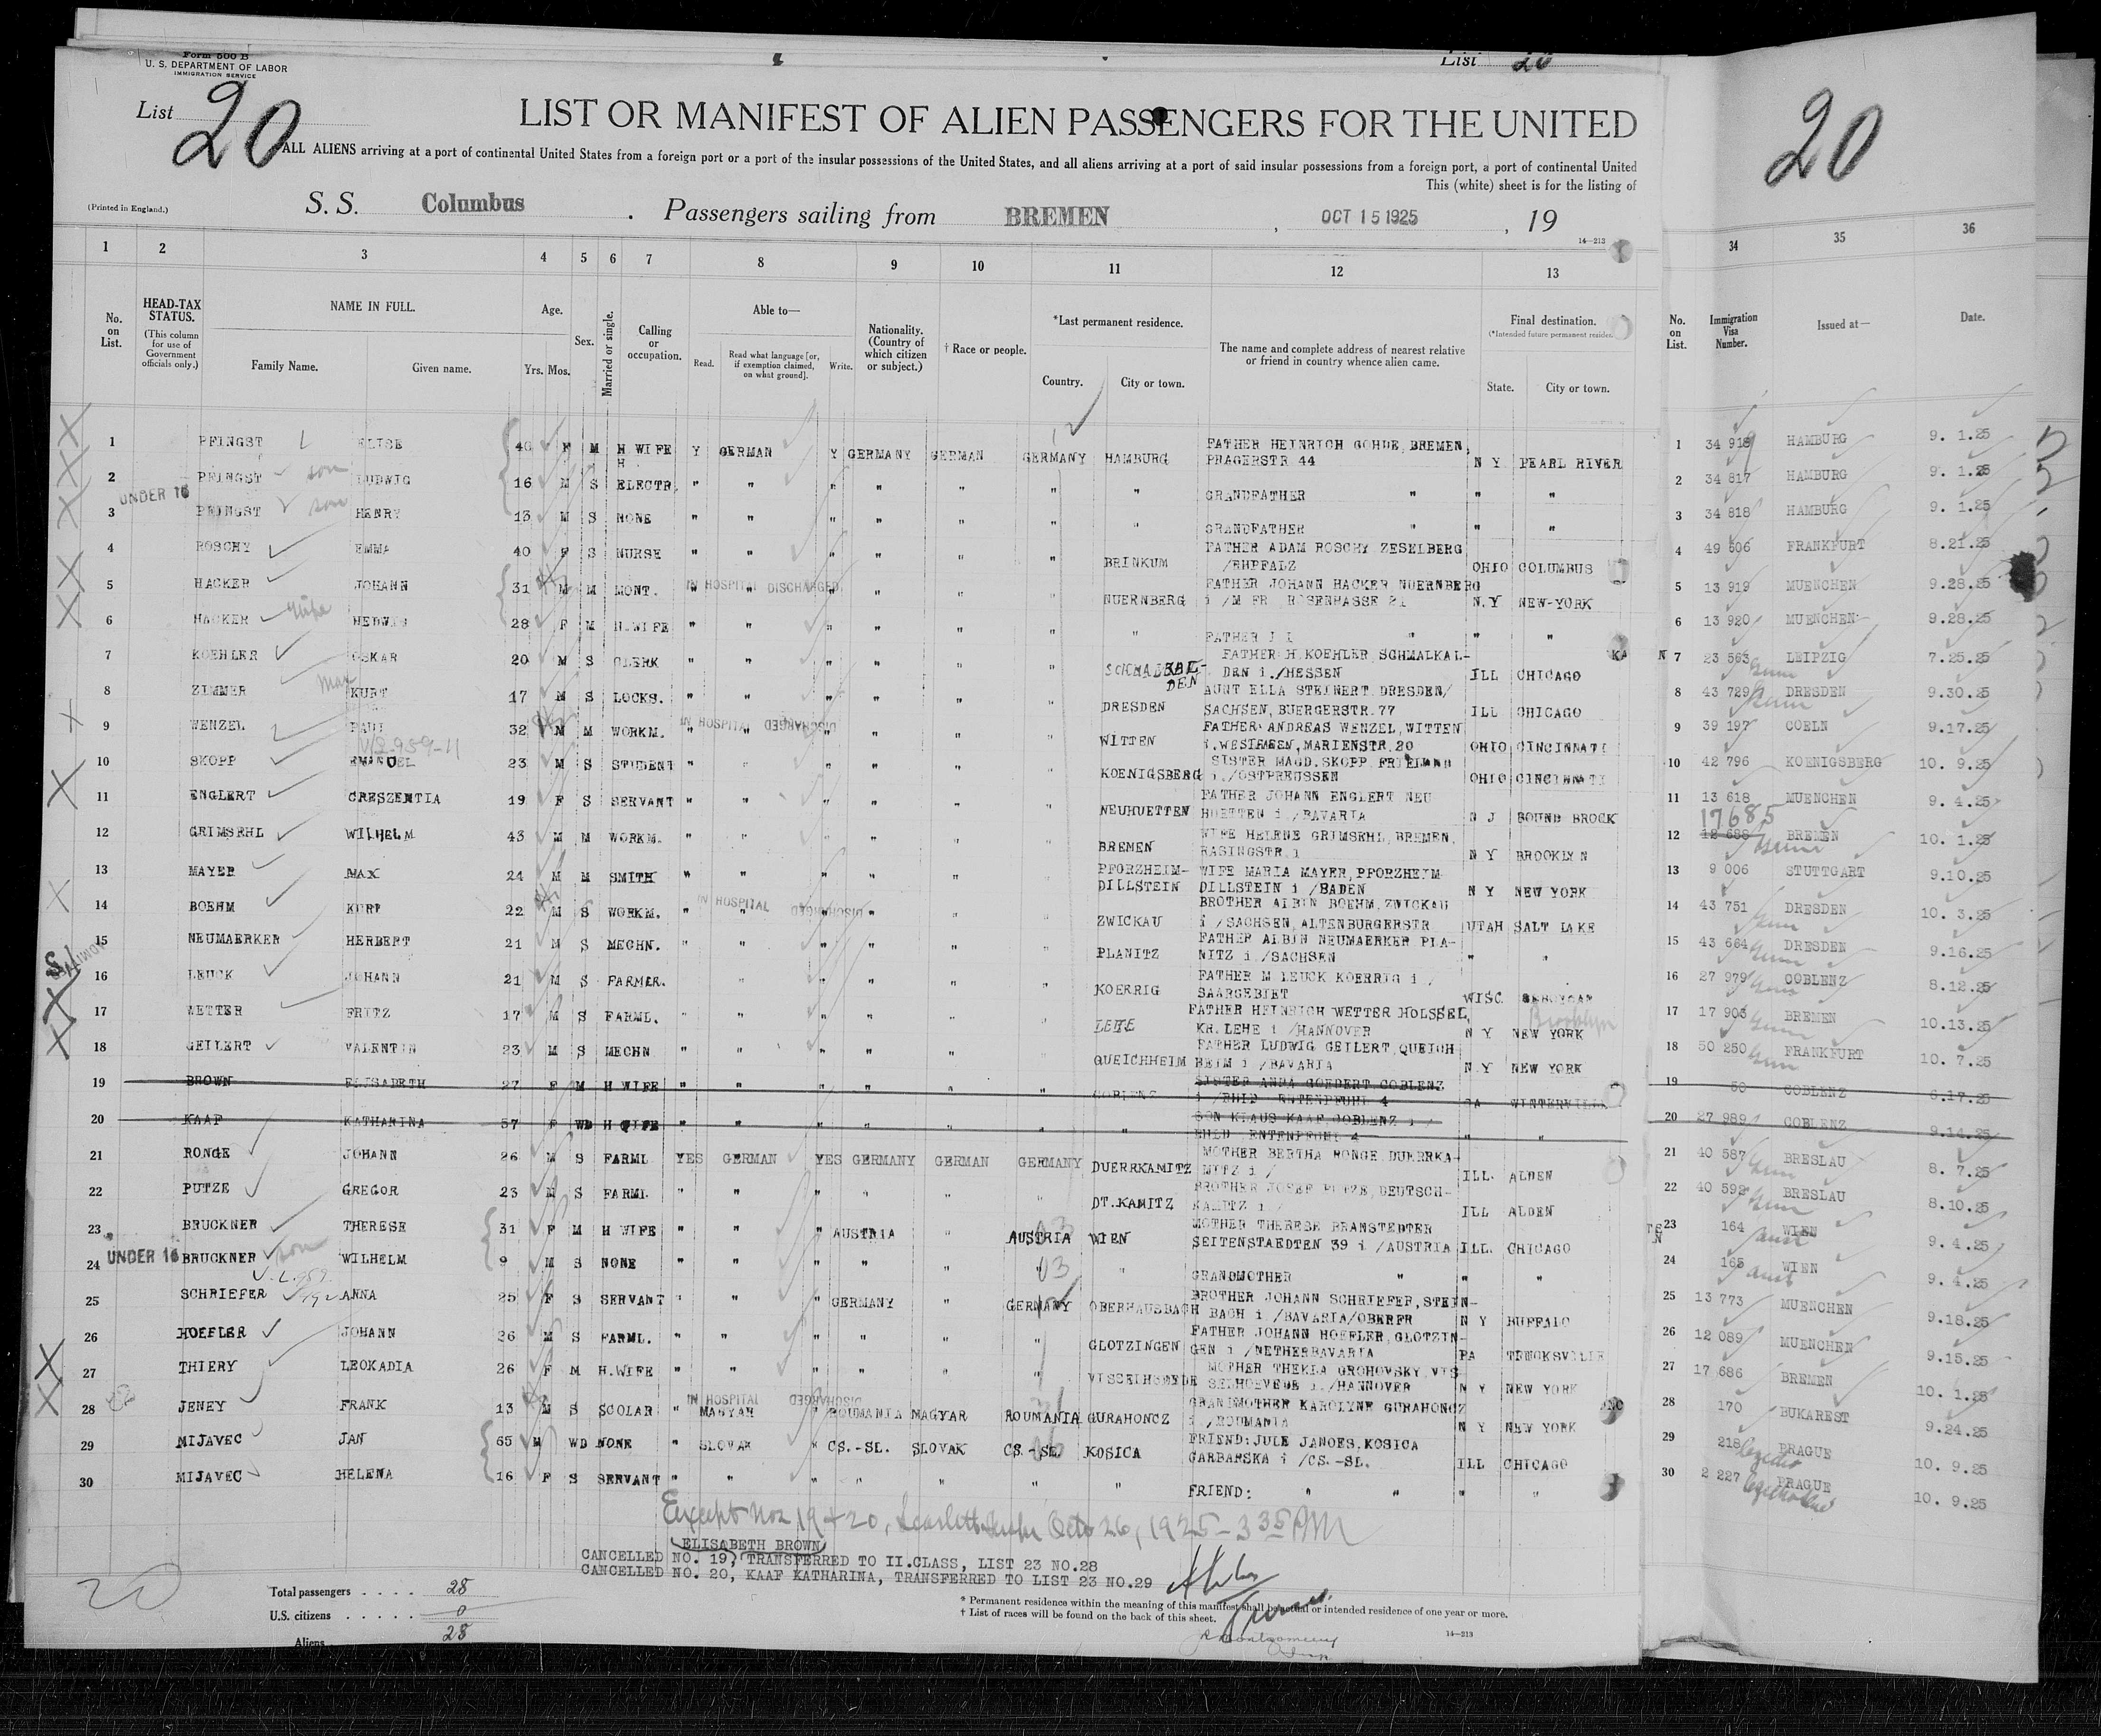 Form 500 B
U. S. DEPARTMENT OF LABOR
IMMIGRATION SERVICE
List 20
List 20
20
LIST OR MANIFEST OF ALIEN PASSENGERS FOR THE UNITED
ALL ALIENS arriving at a port of continental United States from a foreign port or a port of the insular possessions of the United States, and all aliens arriving at a port of said insular possessions from a foreign port, a port of continental United
This (white) sheet is for the listing of
(Printed in England.)
S. S. Columbus . Passengers sailing from BREMEN , OCT 15 1925 , 19
14—213
1 2 3 4 5 6 7 8 9 10 11 12 13 34 35 36
No. on List.
HEAD-TAX STATUS.
(This column for use of Government officials only.)
NAME IN FULL.
Family Name. Given name.
Age.
Yrs. Mos.
Sex.
Married or single.
Calling or occupation.
Able to—
Read. Read what language [or, if exemption claimed, on what ground]. Write.
Nationality. (Country of which citizen or subject.)
† Race or people.
*Last permanent residence.
Country. City or town.
The name and complete address of nearest relative or friend in country whence alien came.
Final destination.
(*Intended future permanent residence.)
State. City or town.
No. on List.
Immigration Visa Number.
Issued at—
Date.
1 PFINGST ELISE 40 F M H WIFE Y GERMAN Y GERMANY GERMAN GERMANY HAMBURG FATHER HEINRICH GOHDE, BREMEN, PRAGERSTR 44 N Y PEARL RIVER 1 34 HAMBURG 9. 1.25
2 PFINGST son LUDWIG 16 M S ELECTR. " " " " " " " GRANDFATHER " " " 2 34 817 HAMBURG 9. 1.25
UNDER 16
3 PFINGST son HENRY 13 M S NONE " " " " " " " GRANDFATHER " " " 3 34 818 HAMBURG 9. 1.25
4 ROSCHY EMMA 40 F S NURSE " " " " " " BRINKUM FATHER ADAM ROSCHY ZESELBERG /RHPFALZ OHIO COLUMBUS 4 49 606 FRANKFURT 8.21.25
5 HACKER JOHANN 31 M M MONT. " IN HOSPITAL DISCHARGED " " " " NUERNBERG FATHER JOHANN HACKER NUERNBERG i /M FR ROSENHASSE 21 N.Y NEW-YORK 5 13 919 MUENCHEN 9.28.25
6 HACKER wife HEDWIG 28 F M H.WIFE " " " " " " " FATHER I I " " " 6 13 920 MUENCHEN 9.28.25
7 KOEHLER OSKAR 20 M S CLERK " " " " " " FATHER H. KOEHLER, SCHMALKAL- DEN i./HESSEN ILL CHICAGO 7 23 563 LEIPZIG 7.25.25
8 ZIMMER Max KURT 17 M S LOCKS. " " " " " " DRESDEN AUNT ELLA STEINERT DRESDEN/ SACHSEN, BUERGERSTR.77 ILL CHICAGO 8 43 729 DRESDEN 9.30.25
9 WENZEL PAUL 32 M M WORKM. " IN HOSPITAL DISCHARGED " " " " WITTEN FATHER ANDREAS WENZEL, WITTEN i.WESTHEEN, MARIENSTR.20 OHIO CINCINNATI 9 39 197 COELN 9.17.25
10 SKOPP EMANUEL 23 M S STUDENT " " " " " " KOENIGSBERG SISTER MAGD. SKOPP FRIELAND i./OSTPREUSSEN OHIO CINCINNATI 10 42 796 KOENIGSBERG 10. 9.25
11 ENGLERT CRESZENTIA 19 F S SERVANT " " " " " " NEUHUETTEN FATHER JOHANN ENGLERT NEU HUETTEN i /BAVARIA N J BOUND BROOK 11 13 618 MUENCHEN 9. 4.25
12 GRIMSEHL WILHELM 43 M M WORKM. " " " " " " BREMEN WIFE HELENE GRIMSEHL, BREMEN, RASINGSTR.i N Y BROOKLYN 12 17685 12 688 BREMEN 10. 1.25
13 MAYER MAX 24 M M SMITH " " " " " " PFORZHEIM- DILLSTEIN WIFE MARIA MAYER, PFORZHEIM DILLSTEIN i /BADEN N Y NEW YORK 13 9 006 STUTTGART 9.10.25
14 BOEHM KURT 22 M S WORKM. " IN HOSPITAL DISCHARGED " " " " ZWICKAU BROTHER ALBIN BOEHM, ZWICKAU i /SACHSEN, ALTENBURGERSTR UTAH SALT LAKE 14 43 751 DRESDEN 10. 3.25
15 NEUMAERKER HERBERT 21 M S MECHN. " " " " " " PLANITZ FATHER ALBIN NEUMAERKER PLA- NITZ i /SACHSEN " " 15 43 664 DRESDEN 9.16.25
16 LEUCK JOHANN 21 M S FARMER. " " " " " KOERRIG FATHER M LEUCK KOERRIG i / SAARGEBIET WISC SEBOYGAN 16 27 979 COBLENZ 8.12.25
17 WETTER FRITZ 17 M S FARML. " " " " " " LEHE FATHER HEINRICH WETTER HOLSSEL, KR. LEHE i /HANNOVER N Y NEW YORK Brooklyn 17 17 903 BREMEN 10.13.25
18 GEILERT VALENTIN 23 M S MECHN " " " " " " QUEICHHEIM FATHER LUDWIG GEILERT, QUEICH HEIM i /BAVARIA N.Y NEW YORK 18 50 250 FRANKFURT 10. 7.25
19 BROWN ELISABETH 27 F M H WIFE " " " " " " COBLENZ SISTER ANNA GOEDERT COBLENZ i /RHLD ENTENPFUHL 4 PA 19 COBLENZ 8.17.25
20 KAAF KATHARINA 57 F WD H WIFE " " " " " " " SON KLAUS KAAF COBLENZ i / RHLD ENTENPFUHL 4 " " 20 27 989 COBLENZ 9.14.25
21 RONGE JOHANN 26 M S FARML YES GERMAN YES GERMANY GERMAN GERMANY DUERRKAMITZ MOTHER BERTHA RONGE DUERRKA- MITZ i / ILL. ALDEN 21 40 587 BRESLAU 8. 7.25
22 PUTZE GREGOR 23 M S FARML " " " " " " DT.KAMITZ BROTHER JOSEF PUTZE, DEUTSCH- KAMITZ i / ILL ALDEN 22 40 592 BRESLAU 8.10.25
23 BRUCKNER THERESE 31 F M H WIFE " " " AUSTRIA " AUSTRIA WIEN MOTHER THERESE BRANSTEDTER SEITENSTAEDTEN 39 i /AUSTRIA ILL. CHICAGO 23 164 WIEN 9. 4.25
24 UNDER 16 BRUCKNER son WILHELM 9 M S NONE " " " " " 03 " GRANDMOTHER " " " 24 165 WIEN 9. 4.25
25 SCHRIEFER ANNA 25 F S SERVANT " " " GERMANY " GERMANY OBERHAUSBACH BROTHER JOHANN SCHRIEFER, STEIN- BACH i /BAVARIA/OBERFR N Y BUFFALO 25 13 773 MUENCHEN 9.18.25
26 HOEFLER JOHANN 26 M S FARML. " " " " " " GLOTZINGEN FATHER JOHANN HOEFLER, GLOTZIN- GEN i /NETHERBAVARIA PA 26 12 089 MUENCHEN 9.15.25
27 THIERY LEOKADIA 26 F M H.WIFE " " " " " " VISSELHOEVEDE MOTHER THEKLA GROHOVSKY VIS SELHOEVEDE i./HANNOVER N Y NEW YORK 27 17 686 BREMEN 10. 1.25
28 JENEY FRANK 13 M S SCOLAR " IN HOSPITAL DISCHARGED MAGYAR " ROUMANIA MAGYAR ROUMANIA GURAHONCZ GRANDMOTHER KAROLYNE GURAHONCZ i /ROUMANIA N Y NEW YORK 28 170 BUKAREST 9.24.25
29 MIJAVEC JAN 65 M WD NONE " SLOVAK " CS.-SL. SLOVAK CS.-SL. KOSICA FRIEND: JULE JANOES, KOSICA GARBARSKA i /CS.-SL. ILL CHICAGO 29 218 PRAGUE 10. 9.25
30 MIJAVEC HELENA 16 F S SERVANT " " " " " " " FRIEND: " " " " 30 2 227 PRAGUE 10. 9.25
Except Nos 19 + 20, Oct 26, 1925 - 3 35 PM
ELISABETH BROWN
CANCELLED NO. 19, TRANSFERRED TO II.CLASS, LIST 23 NO.28
CANCELLED NO. 20, KAAF KATHARINA, TRANSFERRED TO LIST 23 NO.29
20
Total passengers . . . . 28
U.S. citizens . . . . . 0
Aliens 28
* Permanent residence within the meaning of this manifest shall be actual or intended residence of one year or more.
† List of races will be found on the back of this sheet.
14—213